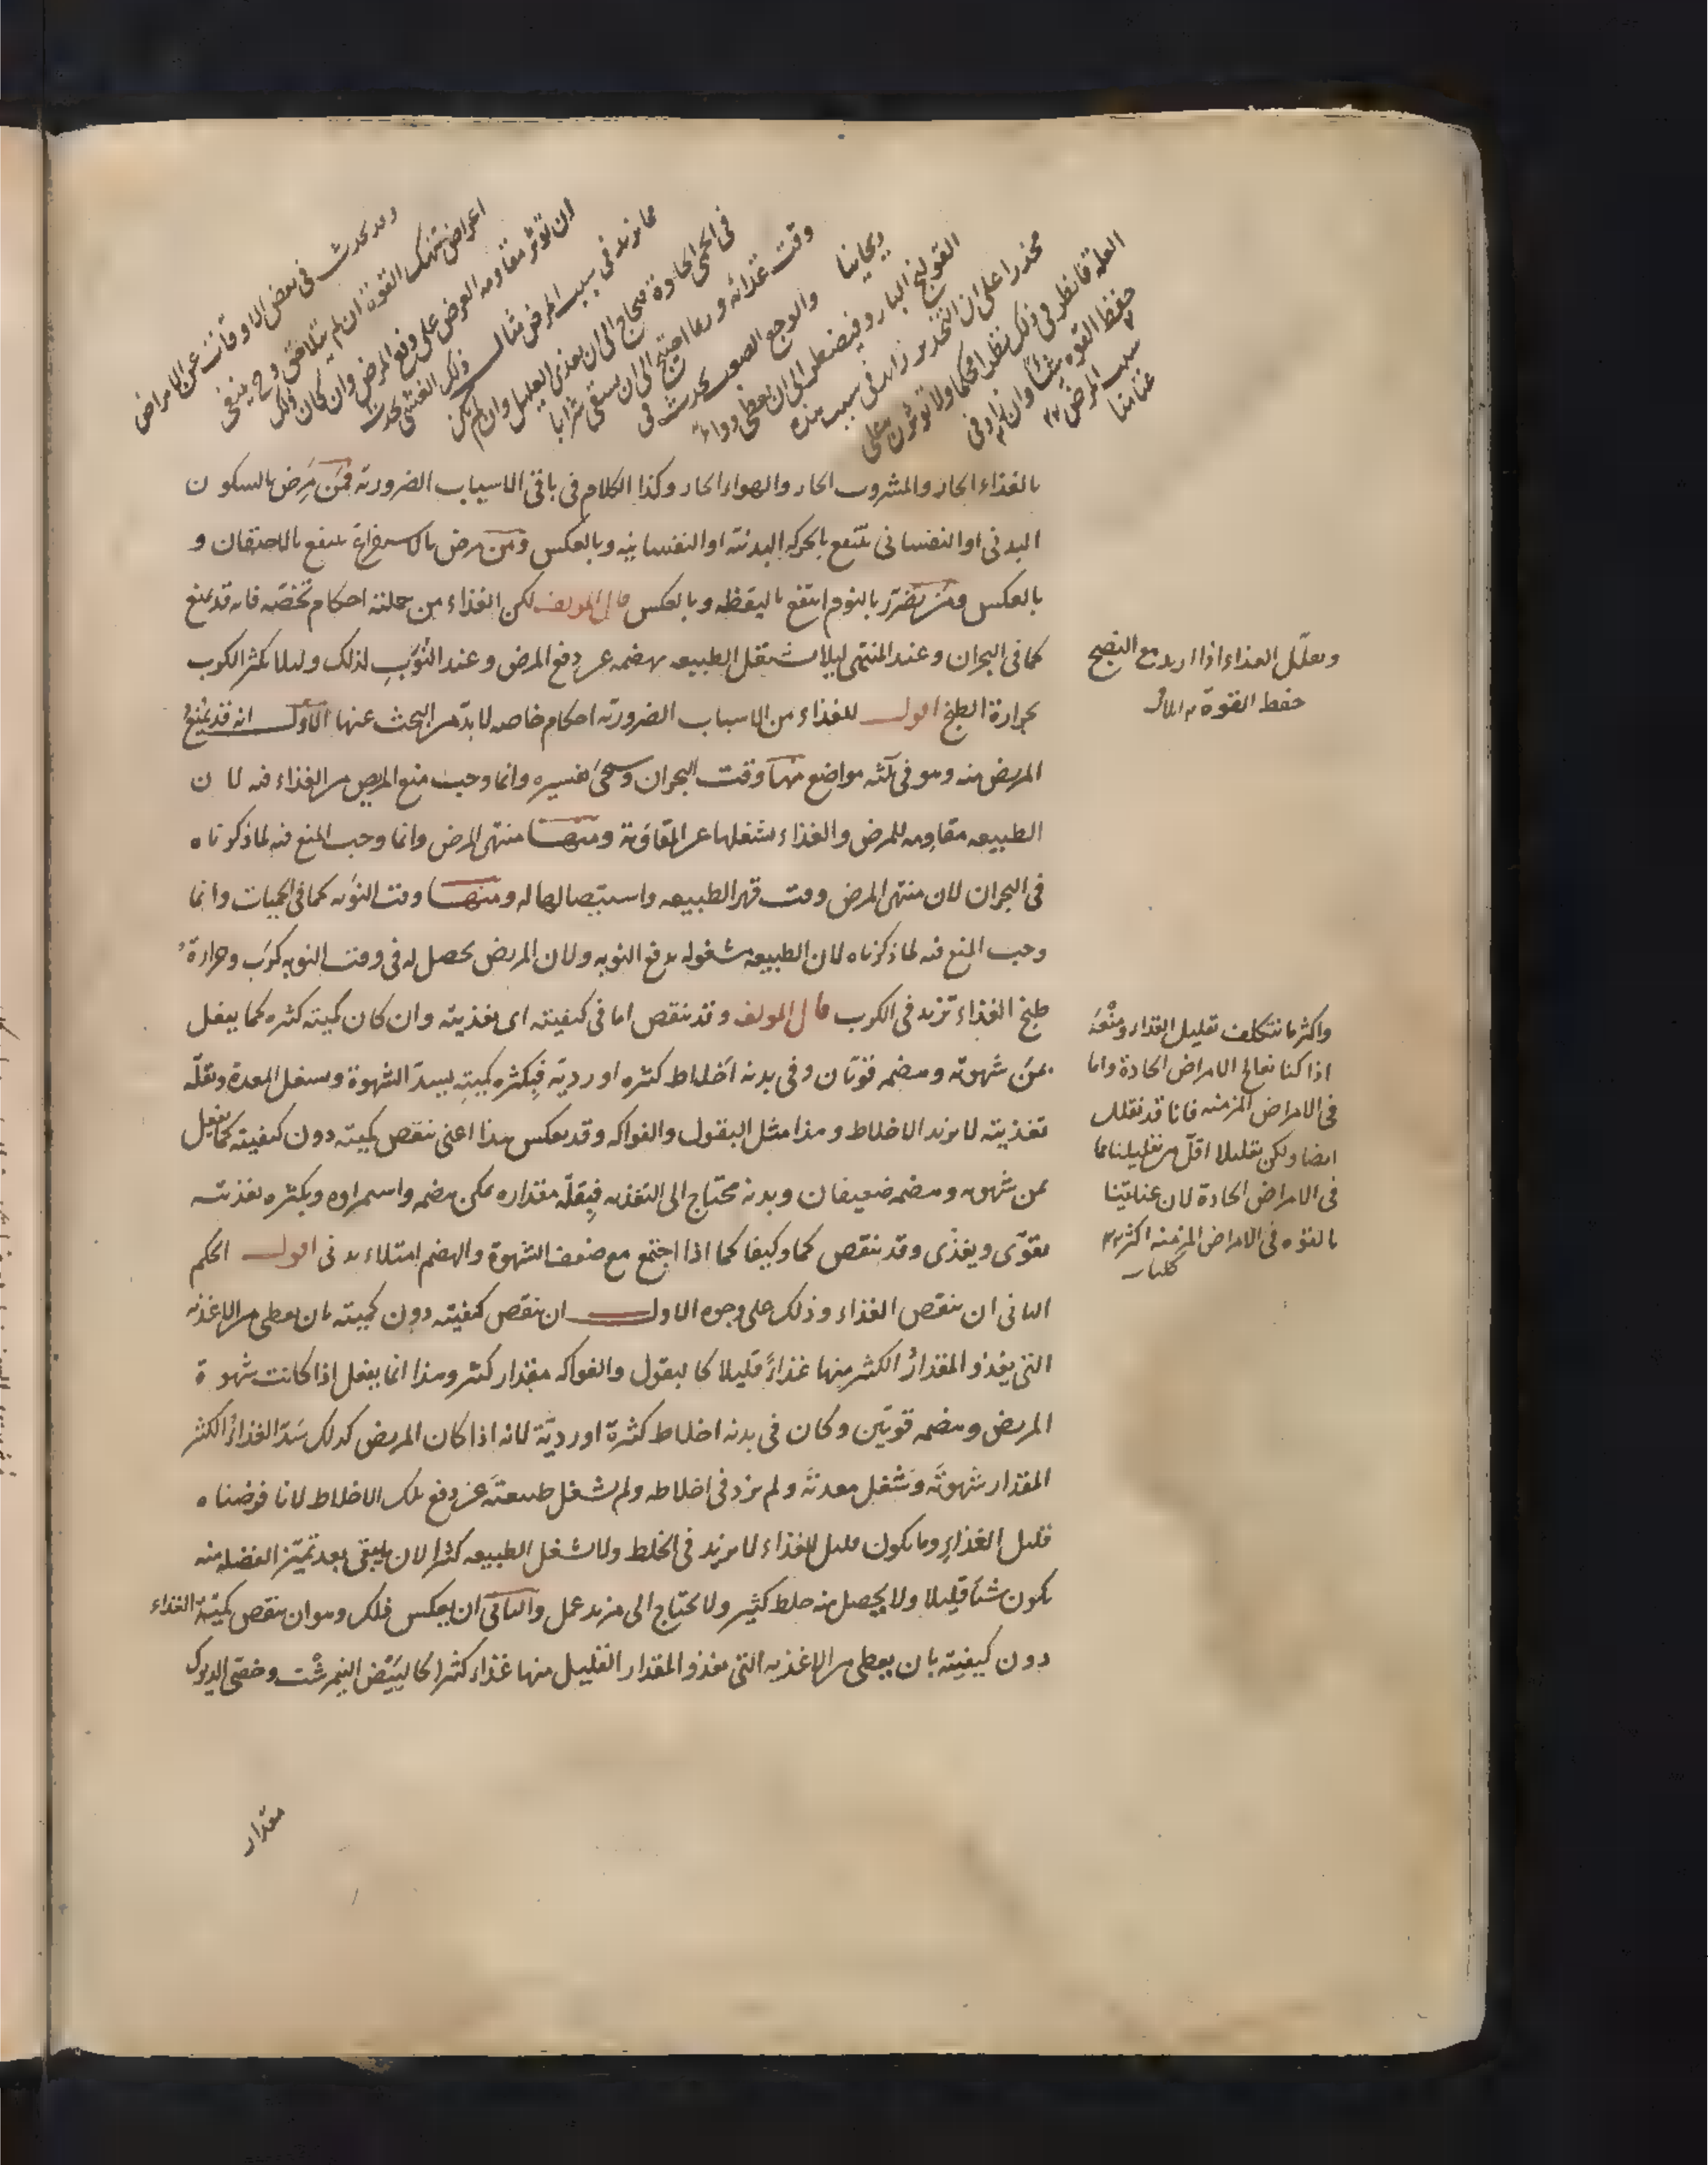 وقد يحدث في بعض الاوقات عن الامراض
اعراض تنهك القوة ان لم تتلاحق وح ينبغي
ان تؤثر مقاومة العرض على دفع المرض وان كان ذلك
مما يزيد في سبب المرض مثال ذلك الغشي يحدث
في الحمى الحادة فيحتاج الى ان يغذى العليل وان لم يكن
وقت غذائه وربما احتيج الى ان يسقى شرابا
ريحانيا والوجع الصعب يحدث في
القولنج البارد فيضطر الى ان يعطى دواء
مخدرا على ان التخدير زائد في سبب هذه
العلة فانظر في ذلك نظرا محكما ولا تؤثرن على
حفظ القوة شيئا وان زاد في
سبب المرض
بالغذاء الحار والمشروب الحار والهواء الحار وكذا الكلام في باقي الاسباب الضرورية فمن مرض بالسكون
البدني او النفساني ينتفع بالحركة البدنية او النفسانية وبالعكس ومن مرض بالاستفراغ ينتفع بالاحتقان و
بالعكس ومن تضرر بالنوم انتفع باليقظة وبالعكس قال المولف لكن الغذاء من جملته احكام تخصه فانه قد يمنع
كما في البحران وعند المنتهى ليلا تشتغل الطبيعه بهضمه عن دفع المرض وعند النوب لذلك وليلا يكثر الكرب
بحرارة الطبخ اقول للغذاء من الاسباب الضرورية احكام خاصه لا بد من البحث عنها الاول انه قد يمنع
المريض منه وهو في ثلثه مواضع منها وقت البحران وسيجئ تفسيره وانما وجب منع المريض من الغذاء فيه لان
الطبيعه مقاومه للمرض والغذاء يشغلها عن المقاومة ومنها منتهى المرض وانما وجب المنع فيه لما ذكرناه
في البحران لان منتهى المرض وقت قهر الطبيعه واستيصالها له ومنها وقت النوبه كما في الحميات وانما
وجب المنع فيه لما ذكرناه لان الطبيعه مشغوله بدفع النوبه ولان المريض يحصل له في وقت النوبه كرب وحرارة
طبخ الغذاء تزيد في الكرب قال المولف وقد ينقص اما في كيفيته اى تغذيته وان كان كميته كثيره كما يفعل
بمن شهوته وهضمه قويان وفي بدنه اخلاط كثيره او ردية فبكثره كميته يسد الشهوة ويشغل المعدة وبقلة
تغذيته لا يزيد الاخلاط وهذا مثل البقول والفواكه وقد يعكس هذا اعني ينقص كميته دون كيفيته كما يفعل
بمن شهوته وهضمه ضعيفان وبدنه محتاج الى التغذيه فبقلة مقداره يمكن هضمه واستمراوه وبكثره تغذيته
يقوى ويغذى وقد ينقص كما وكيفا كما اذا اجتمع مع ضعف الشهوة والهضم امتلاء بدني اقول الحكم
الثاني ان ينقص الغذاء وذلك على وجوه الاول ان ينقص كيفيته دون كميته بان يعطى من الاغذيه
التي يغذو المقدار الكثير منها غذاء قليلا كالبقول والفواكه مقدار كثير وهذا انما يفعل اذا كانت شهوة
المريض وهضمه قويين وكان في بدنه اخلاط كثيرة او ردية لانه اذا كان المريض كذلك سد الغذاء الكثير
المقدار شهوته وشغل معدته ولم يزد في اخلاطه ولم يشغل طبيعته عن دفع تلك الاخلاط لانا فرضناه
قليل الغذاء وما يكون قليل الغذاء لا يزيد في الخلط ولا يشغل الطبيعه كثيرا لان ما يبقى بعد تميز الفضله منه
يكون شيئا قليلا ولا يحصل منه خلط كثير ولا يحتاج الى مزيد عمل والثاني ان يعكس ذلك وهو ان ينقص كمية الغذاء
دون كيفيته بان يعطى من الاغذيه التي يغذو المقدار القليل منها غذاء كثيرا كالبيض النيمرشت وخصى الديوك
وتقلل الغذاء اذا اريد مع النضج
حفظ القوة
واكثر ما نتكلف تقليل الغذاء ومنعه
اذا كنا نعالج الامراض الحادة واما
في الامراض المزمنه فانا قد نقلل
ايضا ولكن تقليلا اقل من تقليلنا مما
في الامراض الحادة لان عنايتنا
بالقوه في الامراض المزمنه اكثر
كليات
مقدار